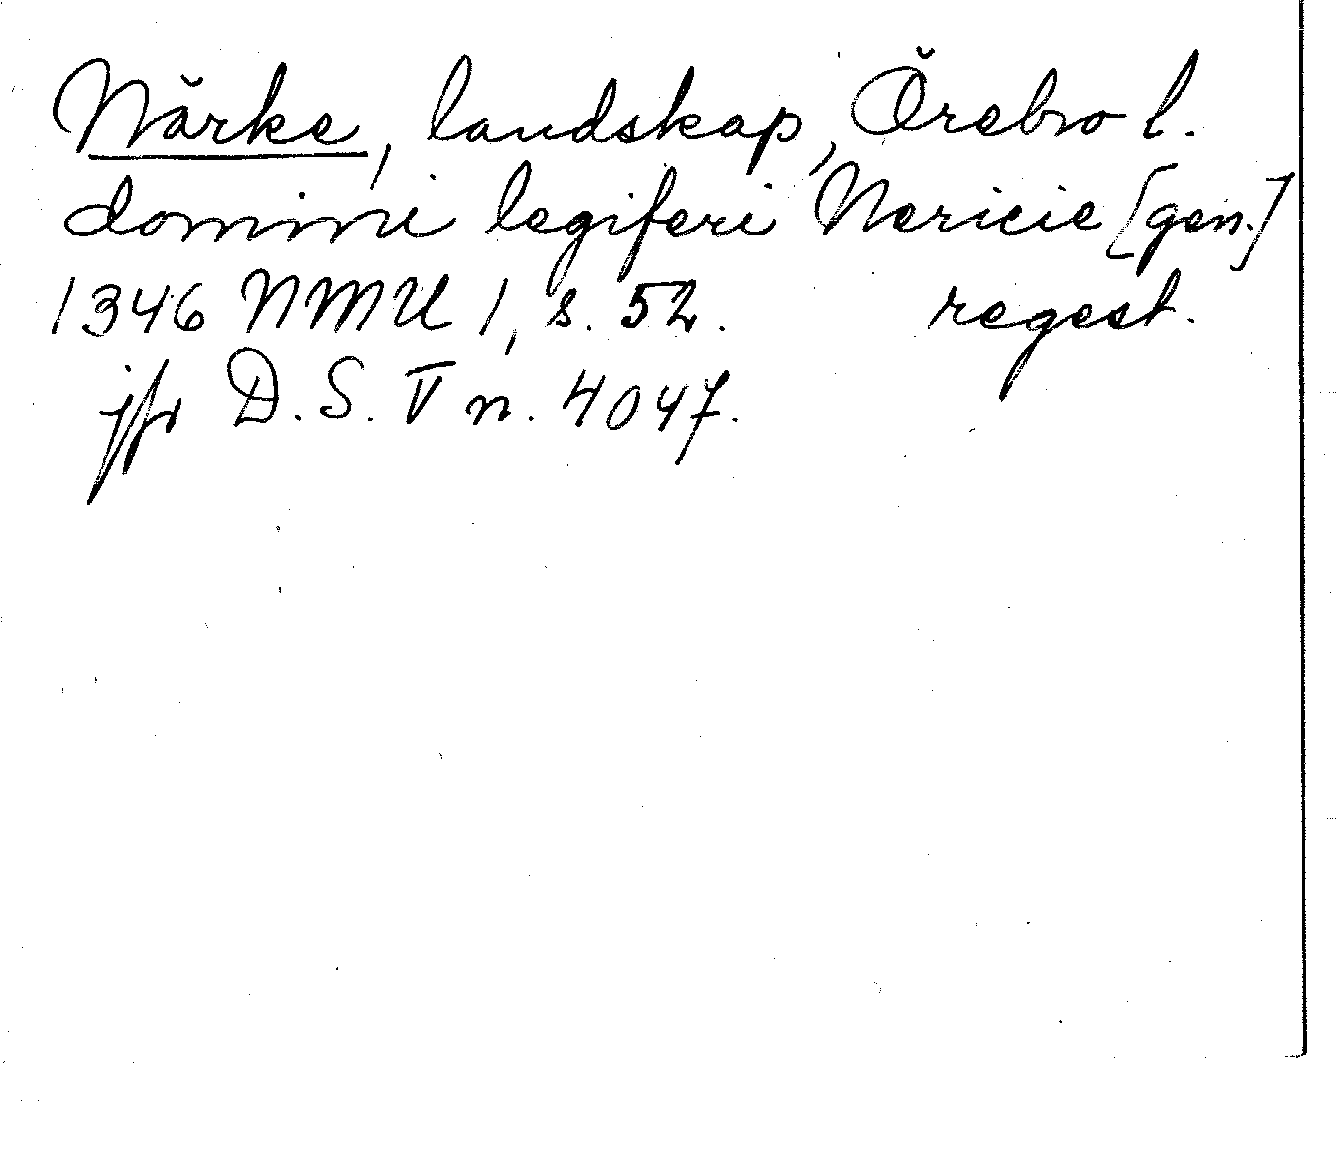 Närke, landskap, Örebro l.
domini legiferi Nericie [gen.]
1346 NMU 1, s. 52. regest.
jfr D.S. V n. 4047.